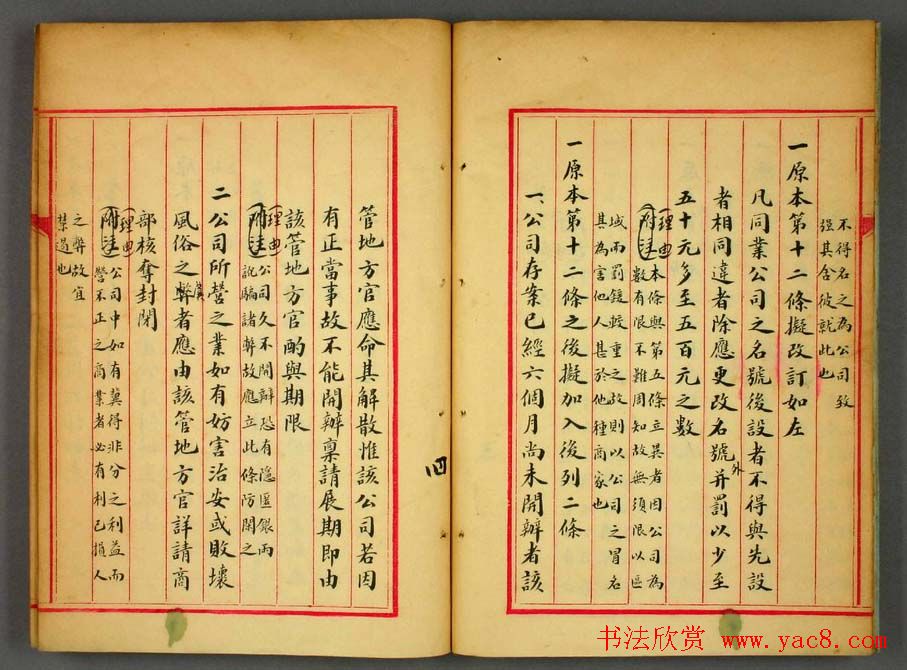 不得名之為公司致
强其含彼就此也
一原本第十二條擬改訂如左
凡同業公司之名號後設者不得與先設
者相同違者除應更改名號外并罰以少至
五十元多至五百元之數
理由
附註
本條與第五條立異者因公司為
數有限不難周知故無須限以區
域而罰鍰較重之故則以公司之冒名
其為害他人甚於他種商家也
一原本第十二條之後擬加入後列二條
一、公司存案已經六個月尚未開辦者該
管地方官應命其解散惟該公司若因
有正當事故不能開辦稟請展期即由
該管地方官酌與期限
理由
附註
公司久不開辦恐有隱匿銀兩
訛騙諸弊故應立此條防閑之
二公司所營之業如有妨害治安或敗壞
風俗之弊虞者應由該管地方官詳請商
部核奪封閉
理由
附註
公司中如有冀得非分之利益而
營不正之商業者必有利己損人
之弊故宜
禁遏也
四
书法欣赏 www.yac8.com